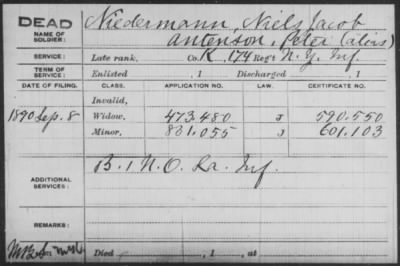 DEAD
NAME OF SOLDIER: Niedermann, Niels Jacob
Antenson, Peter (alias)
SERVICE: Late rank, Co. K, 174 Reg't N.Y. Inf.
TERM OF SERVICE: Enlisted , 1 Discharged , 1
DATE OF FILING. CLASS. APPLICATION NO. LAW. CERTIFICATE NO.
Invalid,
1890 Sep. 8 Widow, 473.480 J 590.550
Minor, 831.055 J 601.103
ADDITIONAL SERVICES: B. 1 N.O. La. Inf.
REMARKS:
Died , 1 , at